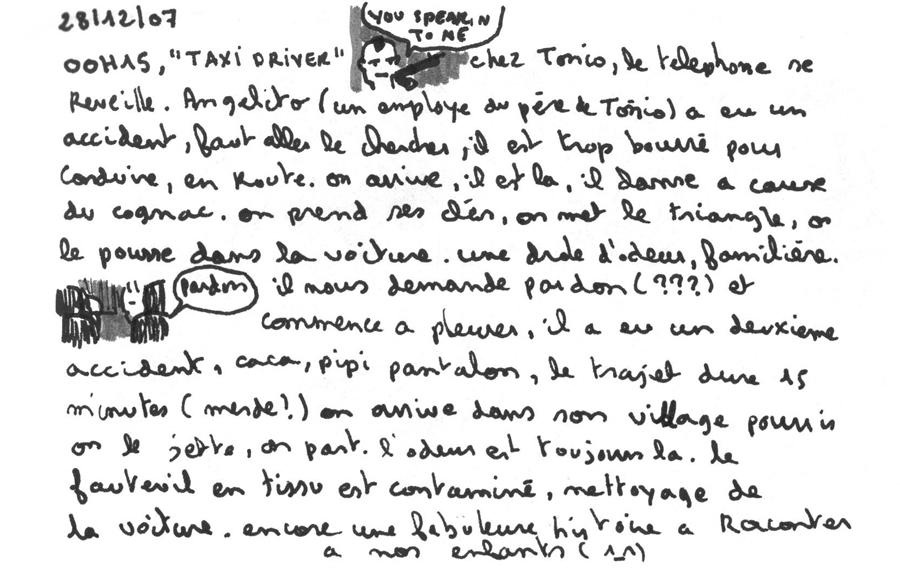 28/12/07
YOU SPEAKIN
TO ME
00H15, "TAXI DRIVER" chez Tonico, le telephone se
Reveille. Angelito (un employe du père de Toñico) a eu un
accident, faut aller le chercher, il est trop bourré pour
conduire, en Route. on arrive, il est la, il danse a cause
du cognac. on prend ses clés, on met le triangle, on
le pousse dans la voiture. une drole d'odeur, familière.
pardon
il nous demande pardon (???) et
commence a pleurer, il a eu un deuxieme
accident, caca, pipi pantalon, le trajet dure 15
minutes (merde!) on arrive dans son village pourris
on le jette, on part. l'odeur est toujours la. le
fauteuil en tissu est contaminé, nettoyage de
la voiture. encore une fabuleuse histoire a Raconter
a nos enfants (1_1)